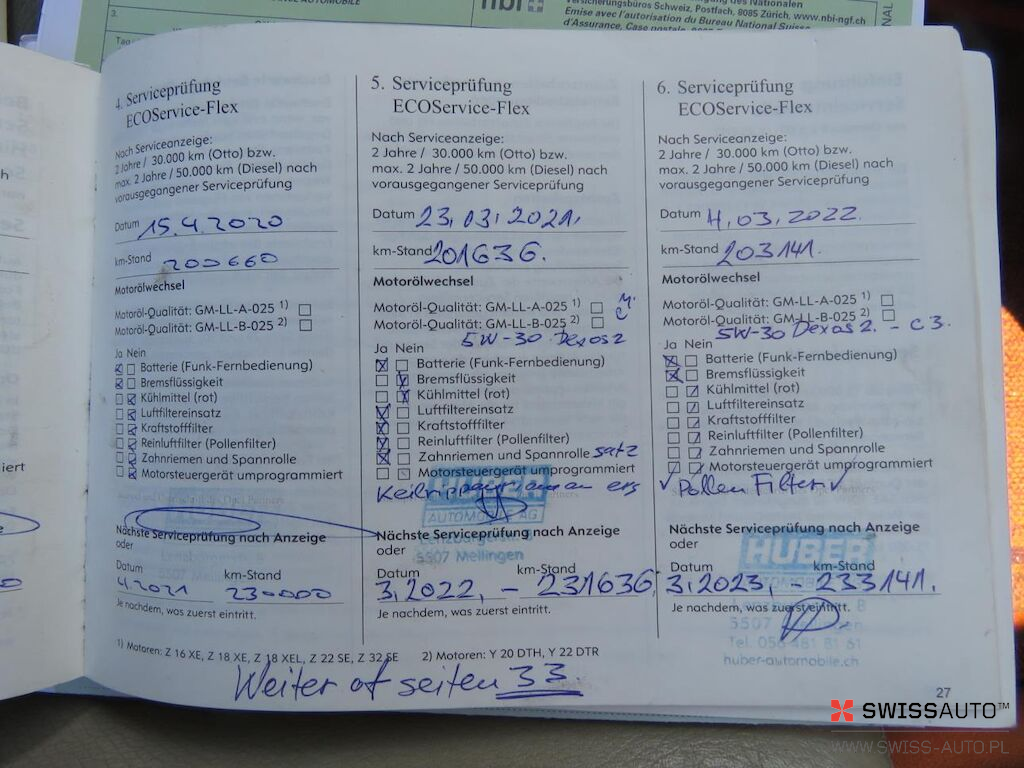 3.
Versicherungsbüros Schweiz, Postfach, 8085 Zürich, www.nbi-ngf.ch
Emise avec l'autorisation du Bureau National Suisse
d'Assurance, Case postale,
nbi
4. Serviceprüfung
ECOService-Flex
Nach Serviceanzeige:
2 Jahre / 30.000 km (Otto) bzw.
max. 2 Jahre / 50.000 km (Diesel) nach
vorausgegangener Serviceprüfung
Datum 15.4.2020
km-Stand 200660
Motorölwechsel
Motoröl-Qualität: GM-LL-A-025 1)
Motoröl-Qualität: GM-LL-B-025 2)
Ja Nein
Batterie (Funk-Fernbedienung)
Bremsflüssigkeit
Kühlmittel (rot)
Luftfiltereinsatz
Kraftstofffilter
Reinluftfilter (Pollenfilter)
Zahnriemen und Spannrolle
Motorsteuergerät umprogrammiert
Nächste Serviceprüfung nach Anzeige
oder
Datum km-Stand
4.2021 230000
Je nachdem, was zuerst eintritt.
5. Serviceprüfung
ECOService-Flex
Nach Serviceanzeige:
2 Jahre / 30.000 km (Otto) bzw.
max. 2 Jahre / 50.000 km (Diesel) nach
vorausgegangener Serviceprüfung
Datum 23.03.2021.
km-Stand 201636.
Motorölwechsel
Motoröl-Qualität: GM-LL-A-025 1)
Motoröl-Qualität: GM-LL-B-025 2)
5W-30 Dexos 2
Ja Nein
Batterie (Funk-Fernbedienung)
Bremsflüssigkeit
Kühlmittel (rot)
Luftfiltereinsatz
Kraftstofffilter
Reinluftfilter (Pollenfilter)
Zahnriemen und Spannrolle satz
Motorsteuergerät umprogrammiert
HUBER
AUTOMOBILE AG
5507 Mellingen
Nächste Serviceprüfung nach Anzeige
oder
Datum km-Stand
3.2022, - 231636
Je nachdem, was zuerst eintritt.
6. Serviceprüfung
ECOService-Flex
Nach Serviceanzeige:
2 Jahre / 30.000 km (Otto) bzw.
max. 2 Jahre / 50.000 km (Diesel) nach
vorausgegangener Serviceprüfung
Datum 4.03.2022.
km-Stand 203141.
Motorölwechsel
Motoröl-Qualität: GM-LL-A-025 1)
Motoröl-Qualität: GM-LL-B-025 2)
5W-30 Dexos 2. - C3.
Ja Nein
Batterie (Funk-Fernbedienung)
Bremsflüssigkeit
Kühlmittel (rot)
Luftfiltereinsatz
Kraftstofffilter
Reinluftfilter (Pollenfilter)
Zahnriemen und Spannrolle
Motorsteuergerät umprogrammiert
Pollen Filter
Nächste Serviceprüfung nach Anzeige
oder
HUBER
Datum km-Stand
3.2023, - 233141.
Je nachdem, was zuerst eintritt.
Tel. 056 481 81 81
huber-automobile.ch
1) Motoren: Z 16 XE, Z 18 XE, Z 18 XEL, Z 22 SE, Z 32 SE 2) Motoren: Y 20 DTH, Y 22 DTR
Weiter of seiten 33
27
SWISSAUTO™
WWW.SWISS-AUTO.PL